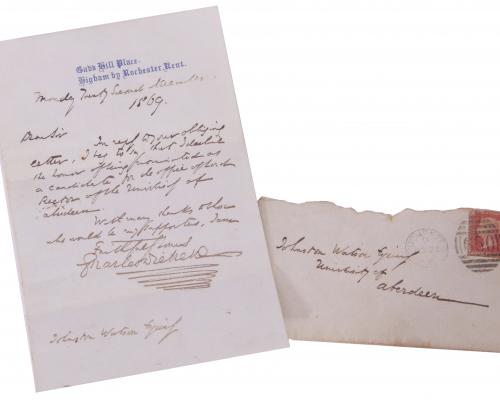 Gads Hill Place,
Higham by Rochester, Kent.
Monday Twenty Second November
1869.
Dear Sir
In reply to your obliging
letter, I beg to say that I decline
the honor of being nominated as
a candidate for the office of Lord
Rector of the University of
Aberdeen.
With many thanks to those
who would be my supporters, I am
Faithfully Yours
Charles Dickens
Johnston Watson Esquire
Johnston Watson Esquire
University of
Aberdeen